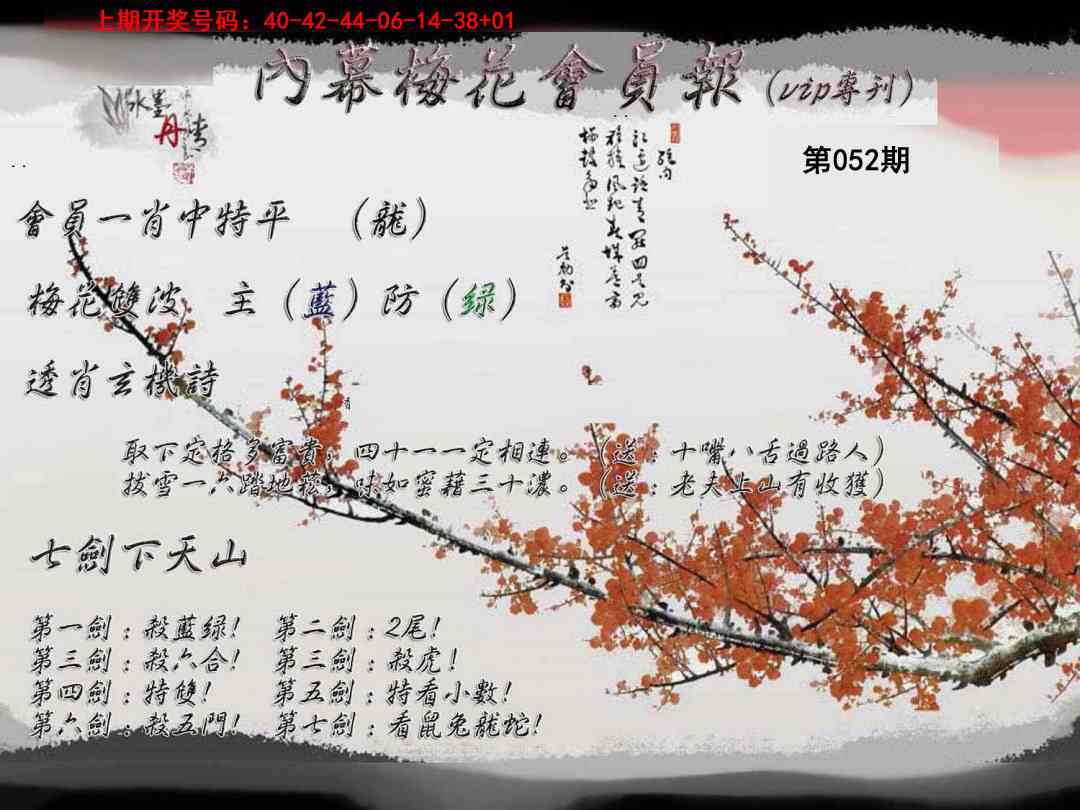 上期开奖号码：40-42-44-06-14-38+01
內幕梅花會員報（vip專刊）
水墨
丹青
第052期
會員一肖中特平 （龍）
梅花雙波 主（藍）防（绿）
透肖玄機詩
取下定格多富貴；四十一一定相連。（送：十嘴八舌過路人）
拔雪一六踏地菘；味如蜜藉三十濃。（送：老夫上山有收獲）
七劍下天山
第一劍：殺藍绿！ 第二劍：2尾！
第三劍：殺六合！ 第三劍：殺虎！
第四劍：特雙！ 第五劍：特看小數！
第六劍：殺五門！ 第七劍：看鼠兔龍蛇！